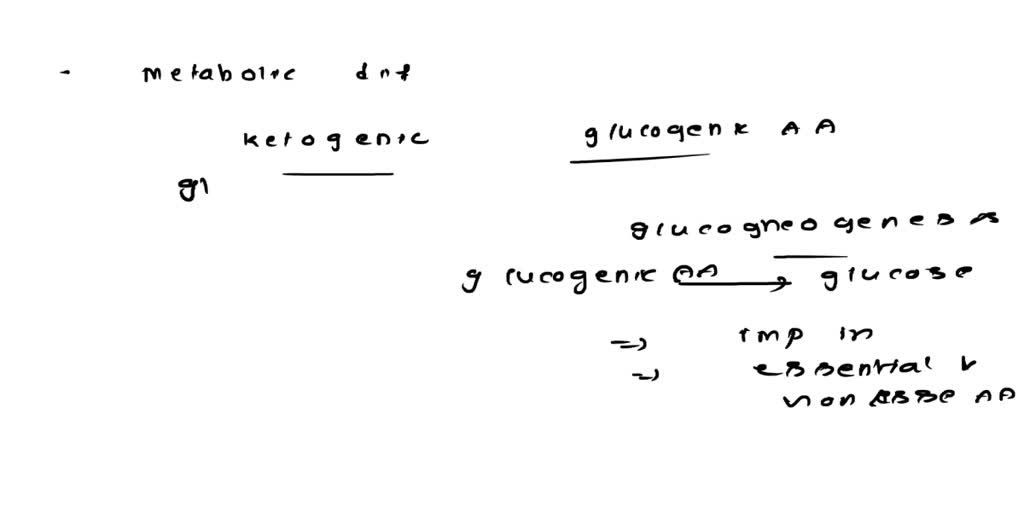 - metabolic dnf
ketogenic glucogenic AA
gl
glucogneogenesis
glucogenic AA → glucose
=> imp in
=> essential &
non esse AA